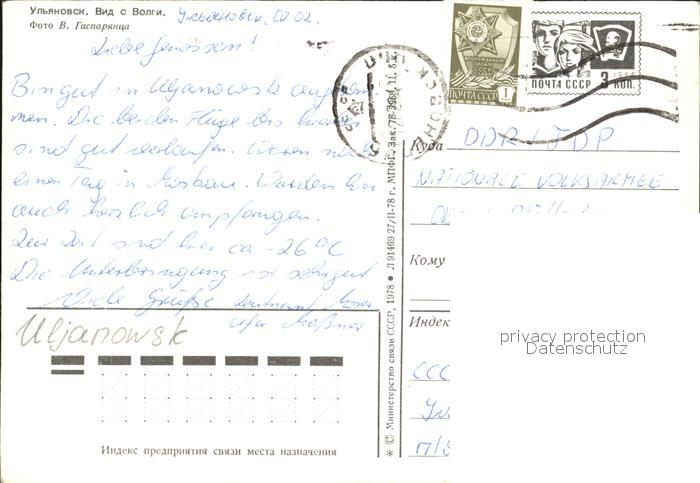 Ульяновск. Вид с Волги. Ульяновск, 02.02.
Фото В. Гаспарянца
Liebe Genossen!
Bin gut in Uljanowsk angekom-
men. Die beiden Flüge bis hierher
sind gut verlaufen. Waren noch
einen Tag in Moskau. Wurden hier
auch herzlich empfangen.
Zur Zeit sind hier ca -26°C
Die Unterbringung ist sehr gut
Viele Grüße Leutnant
Uljanowsk
Индекс предприятия связи места назначения
* © Министерство связи СССР, 1978 ● Л 91469 27/II-78 г. МПФГ. Зак.
ПОЧТА СССР 1
ПОЧТА СССР 3 КОП.
1966
Куда DDR
NATIONALE VOLKSARMEE
Кому
Индек
ССС
Ул
П/
privacy protection
Datenschutz